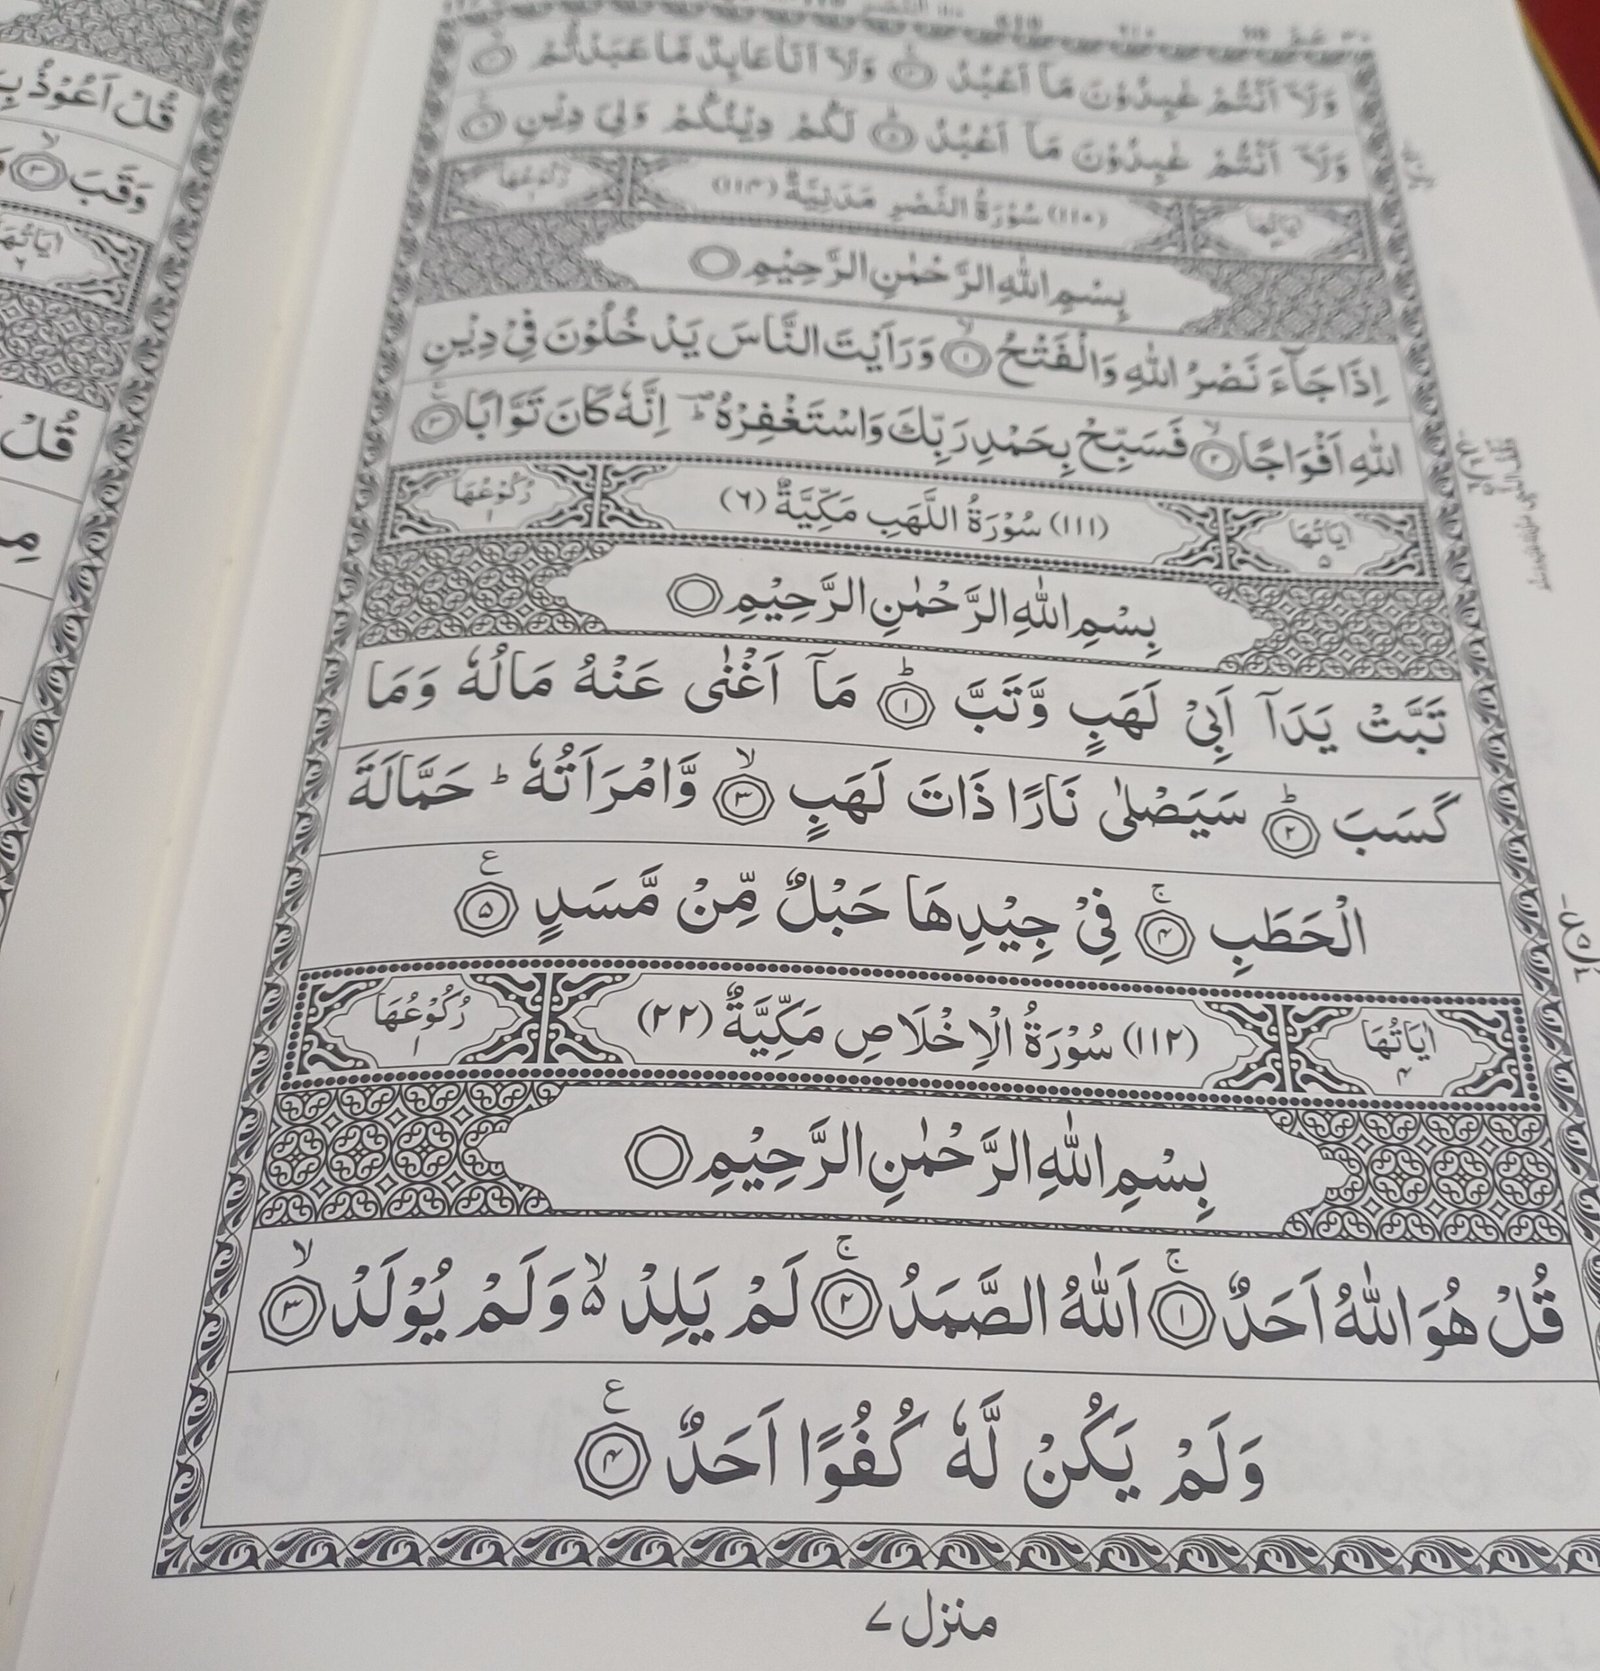 وَلَآ اَنْتُمْ عٰبِدُوْنَ مَآ اَعْبُدُ ۝٣ وَلَآ اَنَا عَابِدٌ مَّا عَبَدْتُّمْ ۝٤
وَلَآ اَنْتُمْ عٰبِدُوْنَ مَآ اَعْبُدُ ۝٥ لَكُمْ دِيْنُكُمْ وَلِيَ دِيْنِ ۝٦
اٰيَاتُهَا (١١٠) سُوْرَةُ النَّصْرِ مَدَنِيَّةٌ (١١٤) رُكُوْعُهَا ١
بِسْمِ اللّٰهِ الرَّحْمٰنِ الرَّحِيْمِ
اِذَا جَآءَ نَصْرُ اللّٰهِ وَالْفَتْحُ ۙ۝١ وَرَاَيْتَ النَّاسَ يَدْخُلُوْنَ فِيْ دِيْنِ
اللّٰهِ اَفْوَاجًا ۙ۝٢ فَسَبِّحْ بِحَمْدِ رَبِّكَ وَاسْتَغْفِرْهُ ؕ اِنَّهٗ كَانَ تَوَّابًا ۝٣
اٰيَاتُهَا ٥ (١١١) سُوْرَةُ اللَّهَبِ مَكِّيَّةٌ (٦) رُكُوْعُهَا ١
بِسْمِ اللّٰهِ الرَّحْمٰنِ الرَّحِيْمِ
تَبَّتْ يَدَآ اَبِيْ لَهَبٍ وَّتَبَّ ؕ۝١ مَآ اَغْنٰى عَنْهُ مَالُهٗ وَمَا
كَسَبَ ؕ۝٢ سَيَصْلٰى نَارًا ذَاتَ لَهَبٍ ۙ۝٣ وَّامْرَاَتُهٗ ؕ حَمَّالَةَ
الْحَطَبِ ۚ۝٤ فِيْ جِيْدِهَا حَبْلٌ مِّنْ مَّسَدٍ ۝٥ ع
اٰيَاتُهَا ٤ (١١٢) سُوْرَةُ الْاِخْلَاصِ مَكِّيَّةٌ (٢٢) رُكُوْعُهَا ١
بِسْمِ اللّٰهِ الرَّحْمٰنِ الرَّحِيْمِ
قُلْ هُوَ اللّٰهُ اَحَدٌ ۚ۝١ اَللّٰهُ الصَّمَدُ ۚ۝٢ لَمْ يَلِدْ ۙ۬ وَلَمْ يُوْلَدْ ۙ۝٣
وَلَمْ يَكُنْ لَّهٗ كُفُوًا اَحَدٌ ۝٤ ع
منزل ٧
قُلْ اَعُوْذُ بِ
وَقَبَ ۙ۝٣
اٰيَاتُهَا
قُلْ